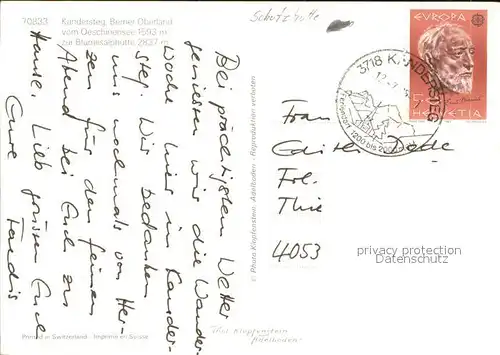 70833 Kandersteg, Berner Oberland
vom Oeschinensee 1593 m
zur Blümlisalphütte 2837 m
Schutzhütte
EVROPA
HELVETIA
3718 KANDERSTEG
1200 bis
Bei prächtigstem Wetter
geniessen wir die Wander-
woche hier in Kander-
steg. Wir bedanken
uns nochmals von Her-
zen für den feinen
Abend bei Euch zu
Hause. Lieb grüssen Euch
Eure
Frau
4053
© Photo Klopfenstein, Adelboden - Reproduktion verboten
Printed in Switzerland - Imprimé en Suisse
Foto Klopfenstein
Adelboden
privacy protection
Datenschutz